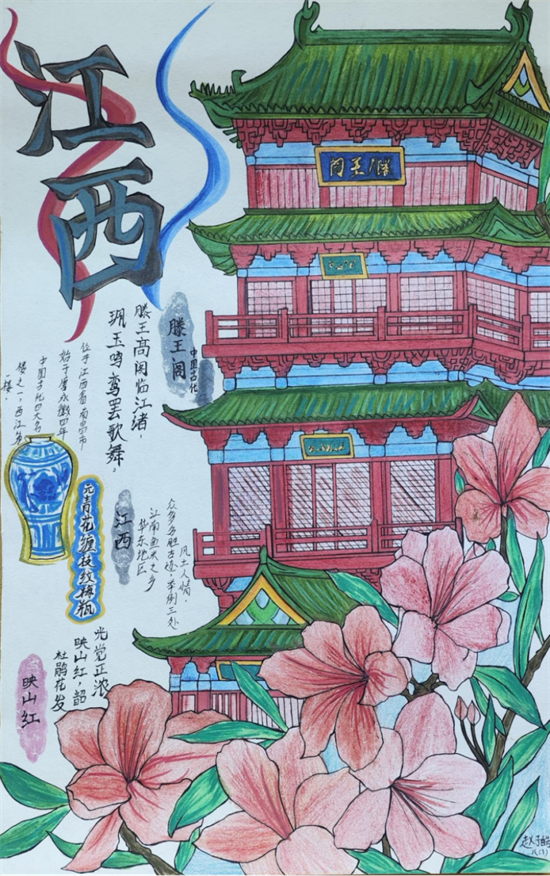 江西
滕王阁
滕王阁
中国古代
滕王高阁临江渚，
珮玉鸣鸾罢歌舞。
位于江西省南昌市
始于唐永徽四年
中国古代四大名
楼之一，西江第
一楼。
元青花缠枝纹梅瓶
江西
风土人情，
众多名胜古迹，举例三处
江南鱼米之乡
华东地区
光觉正浓
映山红，韶
杜鹃花发
映山红